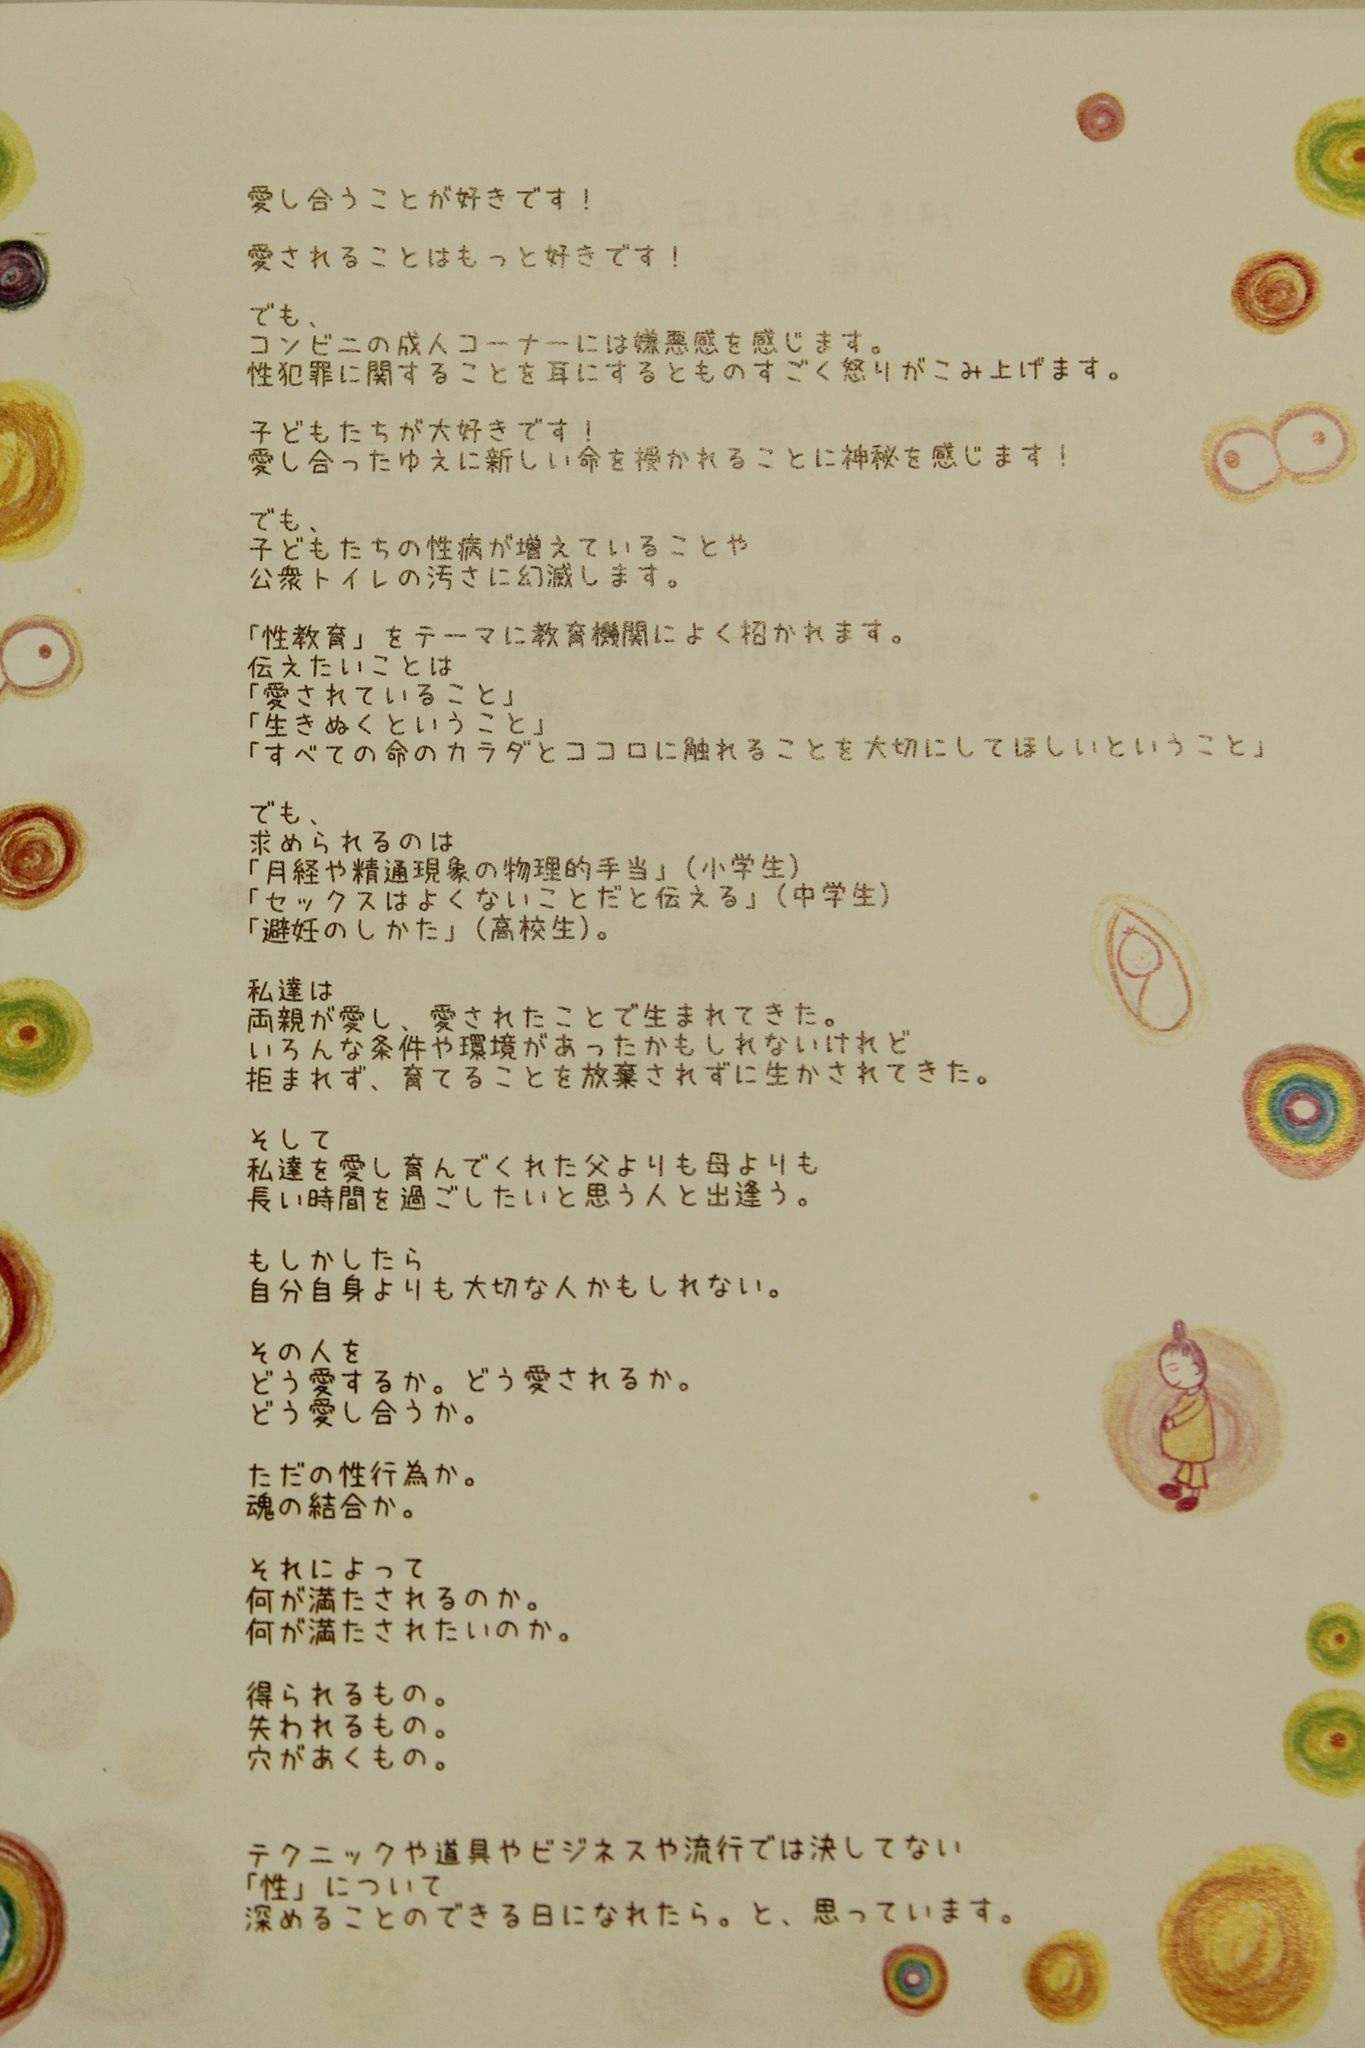 愛し合うことが好きです！
愛されることはもっと好きです！
でも、
コンビニの成人コーナーには嫌悪感を感じます。
性犯罪に関することを耳にするとものすごく怒りがこみ上げます。
子どもたちが大好きです！
愛し合ったゆえに新しい命を授かれることに神秘を感じます！
でも、
子どもたちの性病が増えていることや
公衆トイレの汚さに幻滅します。
「性教育」をテーマに教育機関によく招かれます。
伝えたいことは
「愛されていること」
「生きぬくということ」
「すべての命のカラダとココロに触れることを大切にしてほしいということ」
でも、
求められるのは
「月経や精通現象の物理的手当」（小学生）
「セックスはよくないことだと伝える」（中学生）
「避妊のしかた」（高校生）。
私達は
両親が愛し、愛されたことで生まれてきた。
いろんな条件や環境があったかもしれないけれど
拒まれず、育てることを放棄されずに生かされてきた。
そして
私達を愛し育んでくれた父よりも母よりも
長い時間を過ごしたいと思う人と出逢う。
もしかしたら
自分自身よりも大切な人かもしれない。
その人を
どう愛するか。どう愛されるか。
どう愛し合うか。
ただの性行為か。
魂の結合か。
それによって
何が満たされるのか。
何が満たされたいのか。
得られるもの。
失われるもの。
穴があくもの。
テクニックや道具やビジネスや流行では決してない
「性」について
深めることのできる日になれたら。と、思っています。